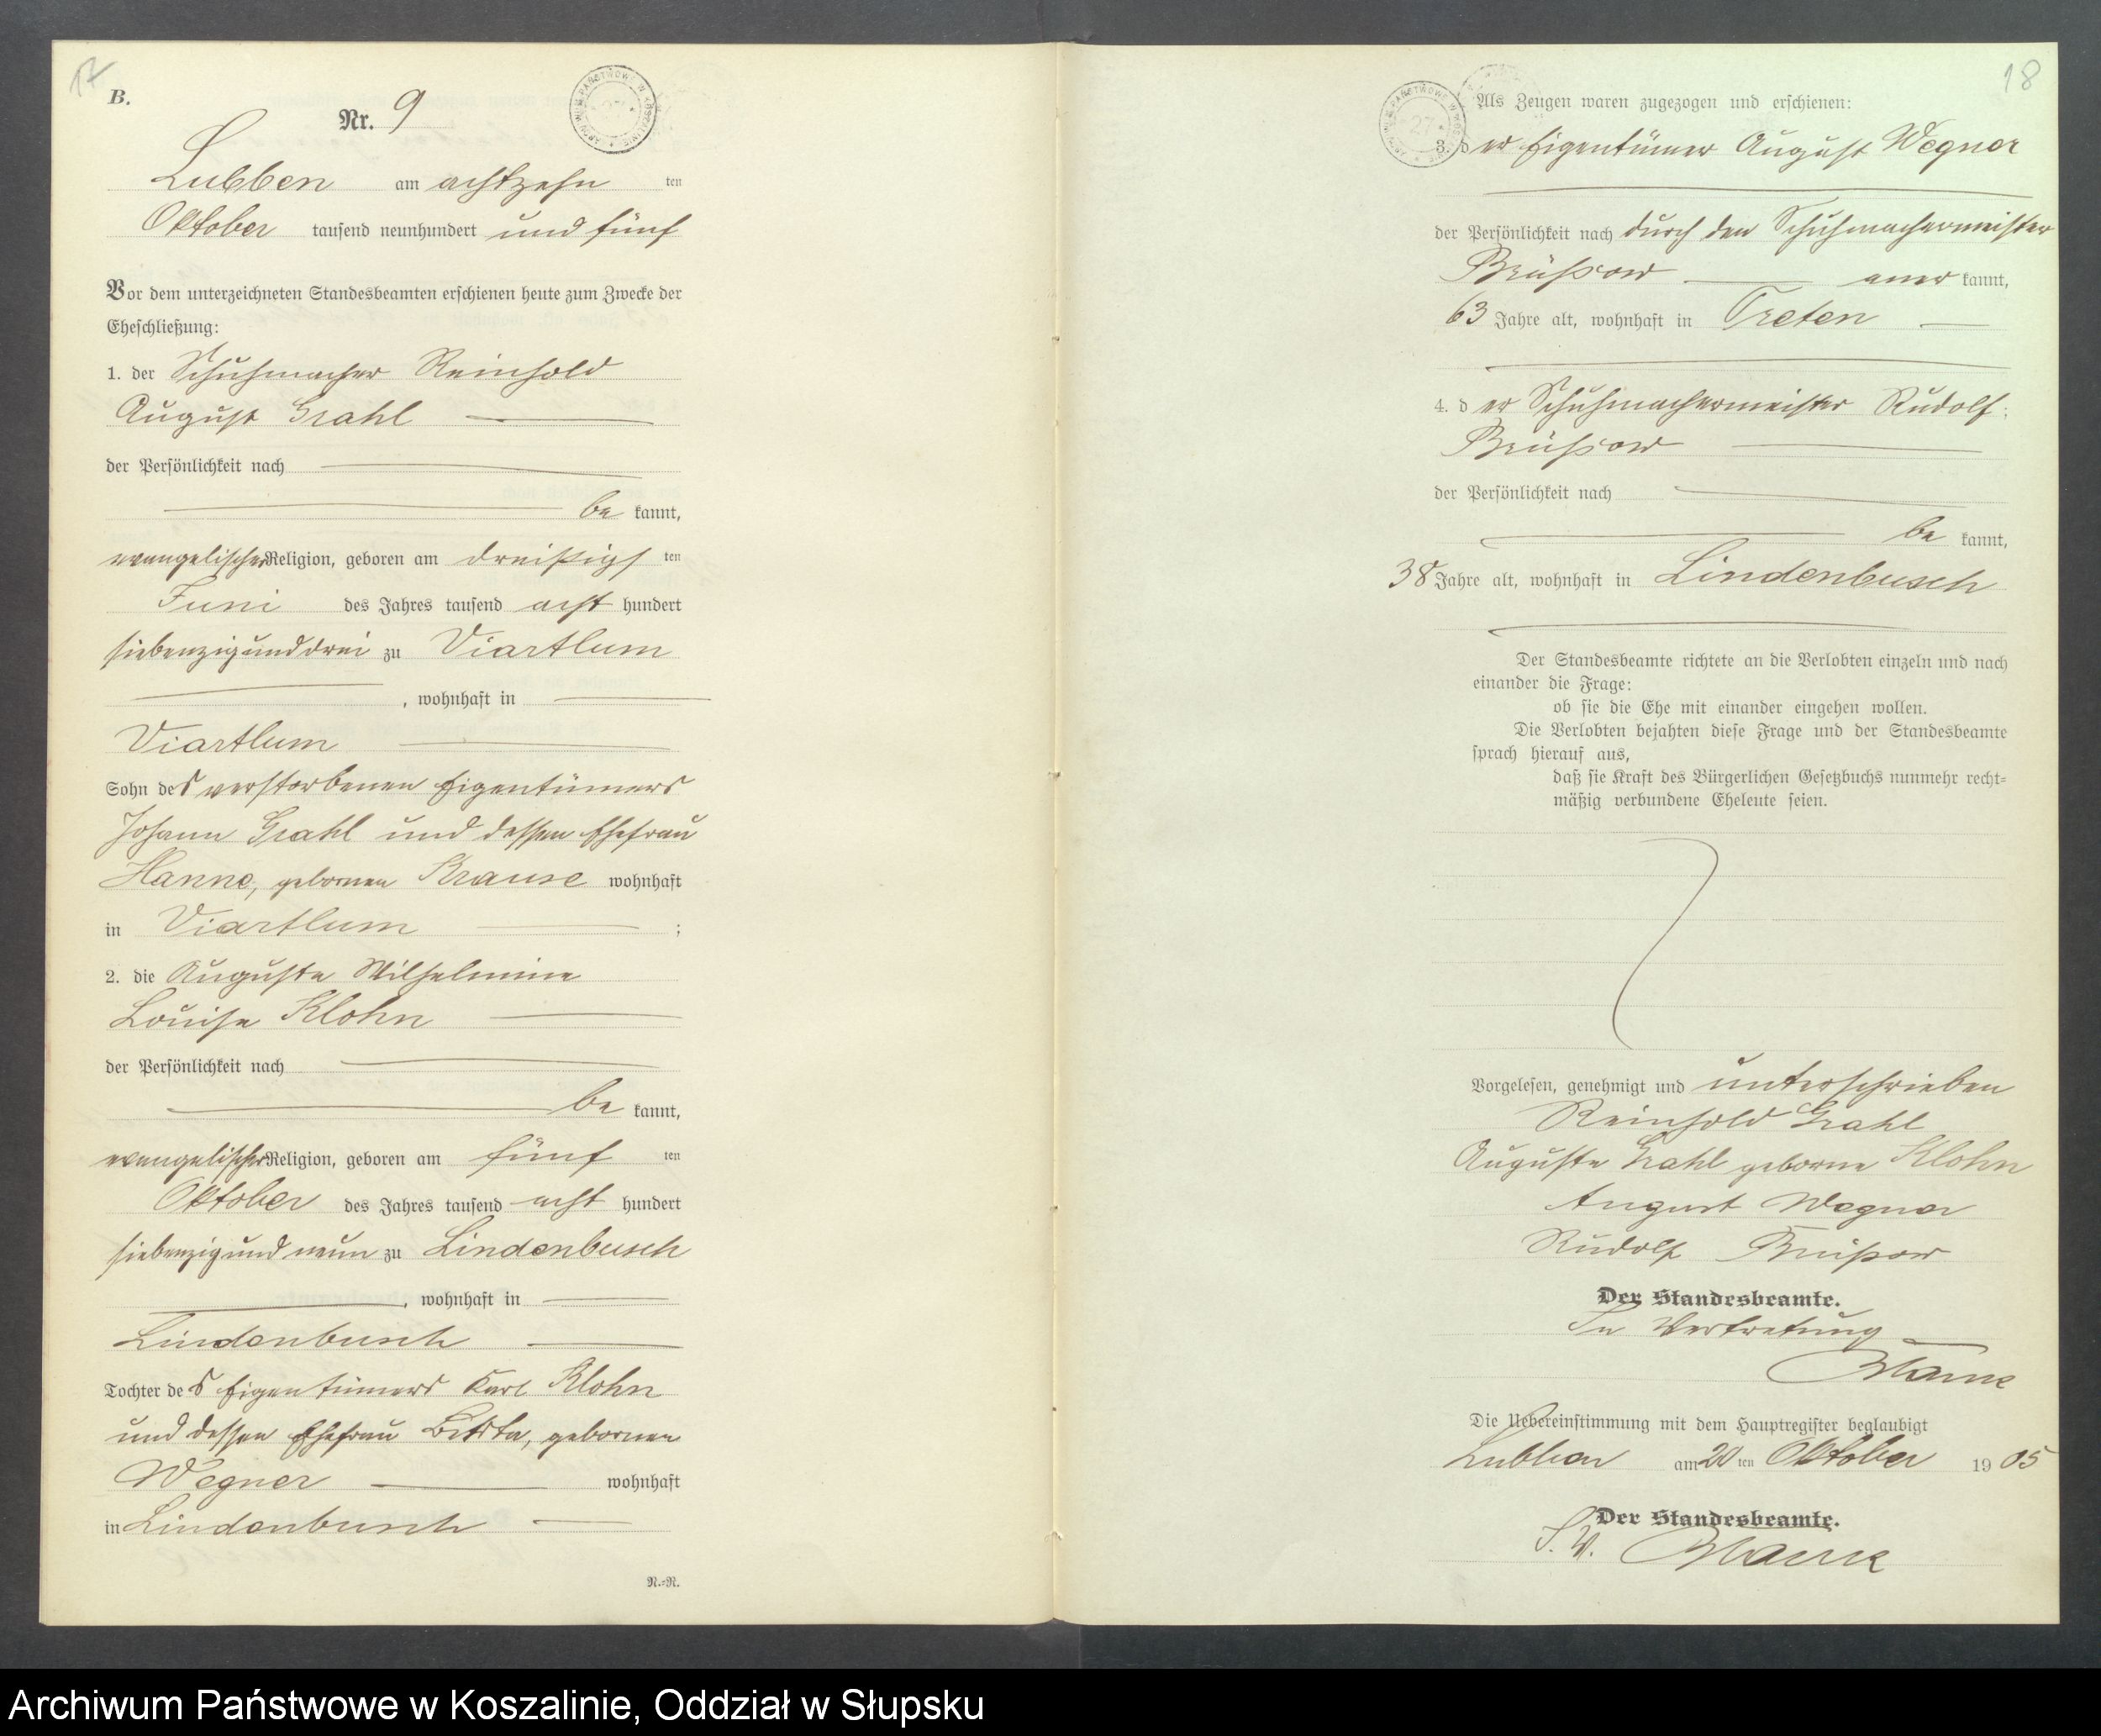 17
B.
Nr. 9
Lubben am achtzehn ten
Oktober tausend neunhundert und fünf
Vor dem unterzeichneten Standesbeamten erschienen heute zum Zwecke der
Eheschließung:
1. der Schuhmacher Reinhold
August Grahl
der Persönlichkeit nach
be kannt,
evangelischer Religion, geboren am dreißigs ten
Juni des Jahres tausend acht hundert
siebenzig und drei zu Viartlum
, wohnhaft in
Viartlum
Sohn des verstorbenen Eigentümers
Johann Grahl und dessen Ehefrau
Hanne, gebornen Krause wohnhaft
in Viartlum ;
2. die Auguste Wilhelmine
Louise Klohn
der Persönlichkeit nach
be kannt,
evangelischer Religion, geboren am fünf ten
Oktober des Jahres tausend acht hundert
siebenzig und neun zu Lindenbusch
, wohnhaft in
Lindenbusch
Tochter des Eigentümers Karl Klohn
und dessen Ehefrau gebornen
Wegner wohnhaft
in Lindenbusch
R.=R.
18
Als Zeugen waren zugezogen und erschienen:
3. der Eigentümer August Wegner
der Persönlichkeit nach durch den Schuhmachermeister
Brüßow aner kannt,
63 Jahre alt, wohnhaft in Treten
4. der Schuhmachermeister Rudolf
Brüßow
der Persönlichkeit nach
be kannt,
38 Jahre alt, wohnhaft in Lindenbusch
Der Standesbeamte richtete an die Verlobten einzeln und nach
einander die Frage:
ob sie die Ehe mit einander eingehen wollen.
Die Verlobten bejahten diese Frage und der Standesbeamte
sprach hierauf aus,
daß sie Kraft des Bürgerlichen Gesetzbuchs nunmehr recht=
mäßig verbundene Eheleute seien.
Vorgelesen, genehmigt und unterschrieben
Reinhold Grahl
Auguste Grahl geborne Klohn
August Wegner
Rudolf Brüßow
Der Standesbeamte.
In Vertretung
Die Uebereinstimmung mit dem Hauptregister beglaubigt
Lubben am 20 ten Oktober 1905
Der Standesbeamte.
I. V.
Archiwum Państwowe w Koszalinie, Oddział w Słupsku